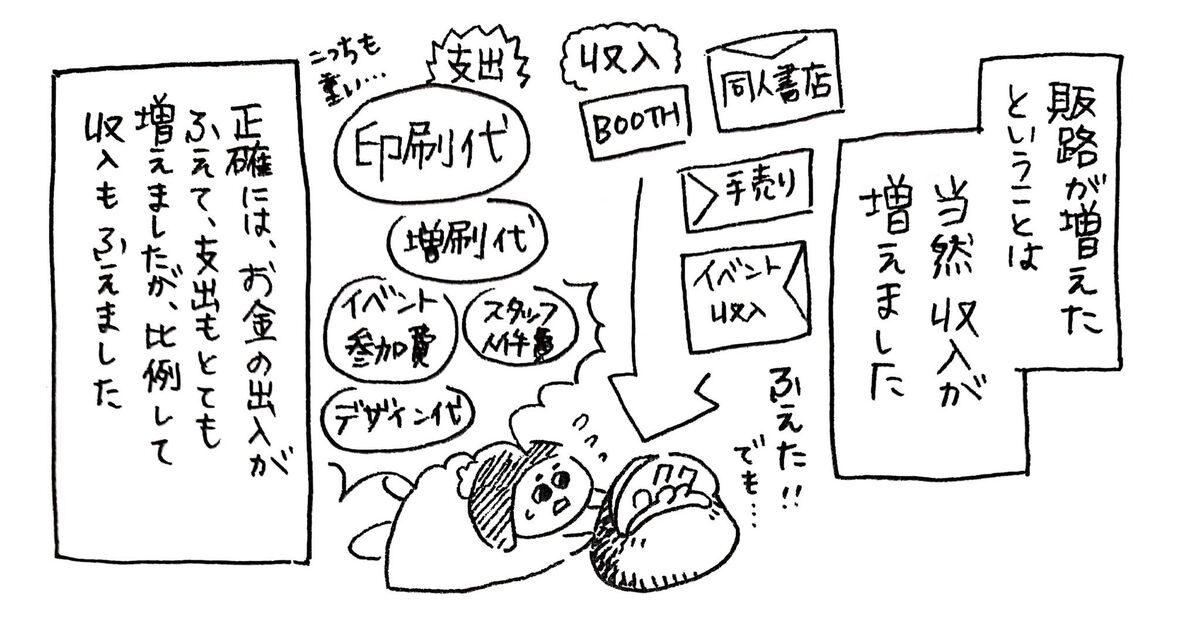 販路が増えた
ということは
当然収入が
増えました
同人書店
収入
BOOTH
手売り
イベント
収入
ふえた!!
でも…
支出
こっちも
重い…
印刷代
増刷代
イベント
参加費
スタッフ
人件費
デザイン代
正確には、お金の出入が
ふえて、支出もとても
増えましたが、比例して
収入もふえました